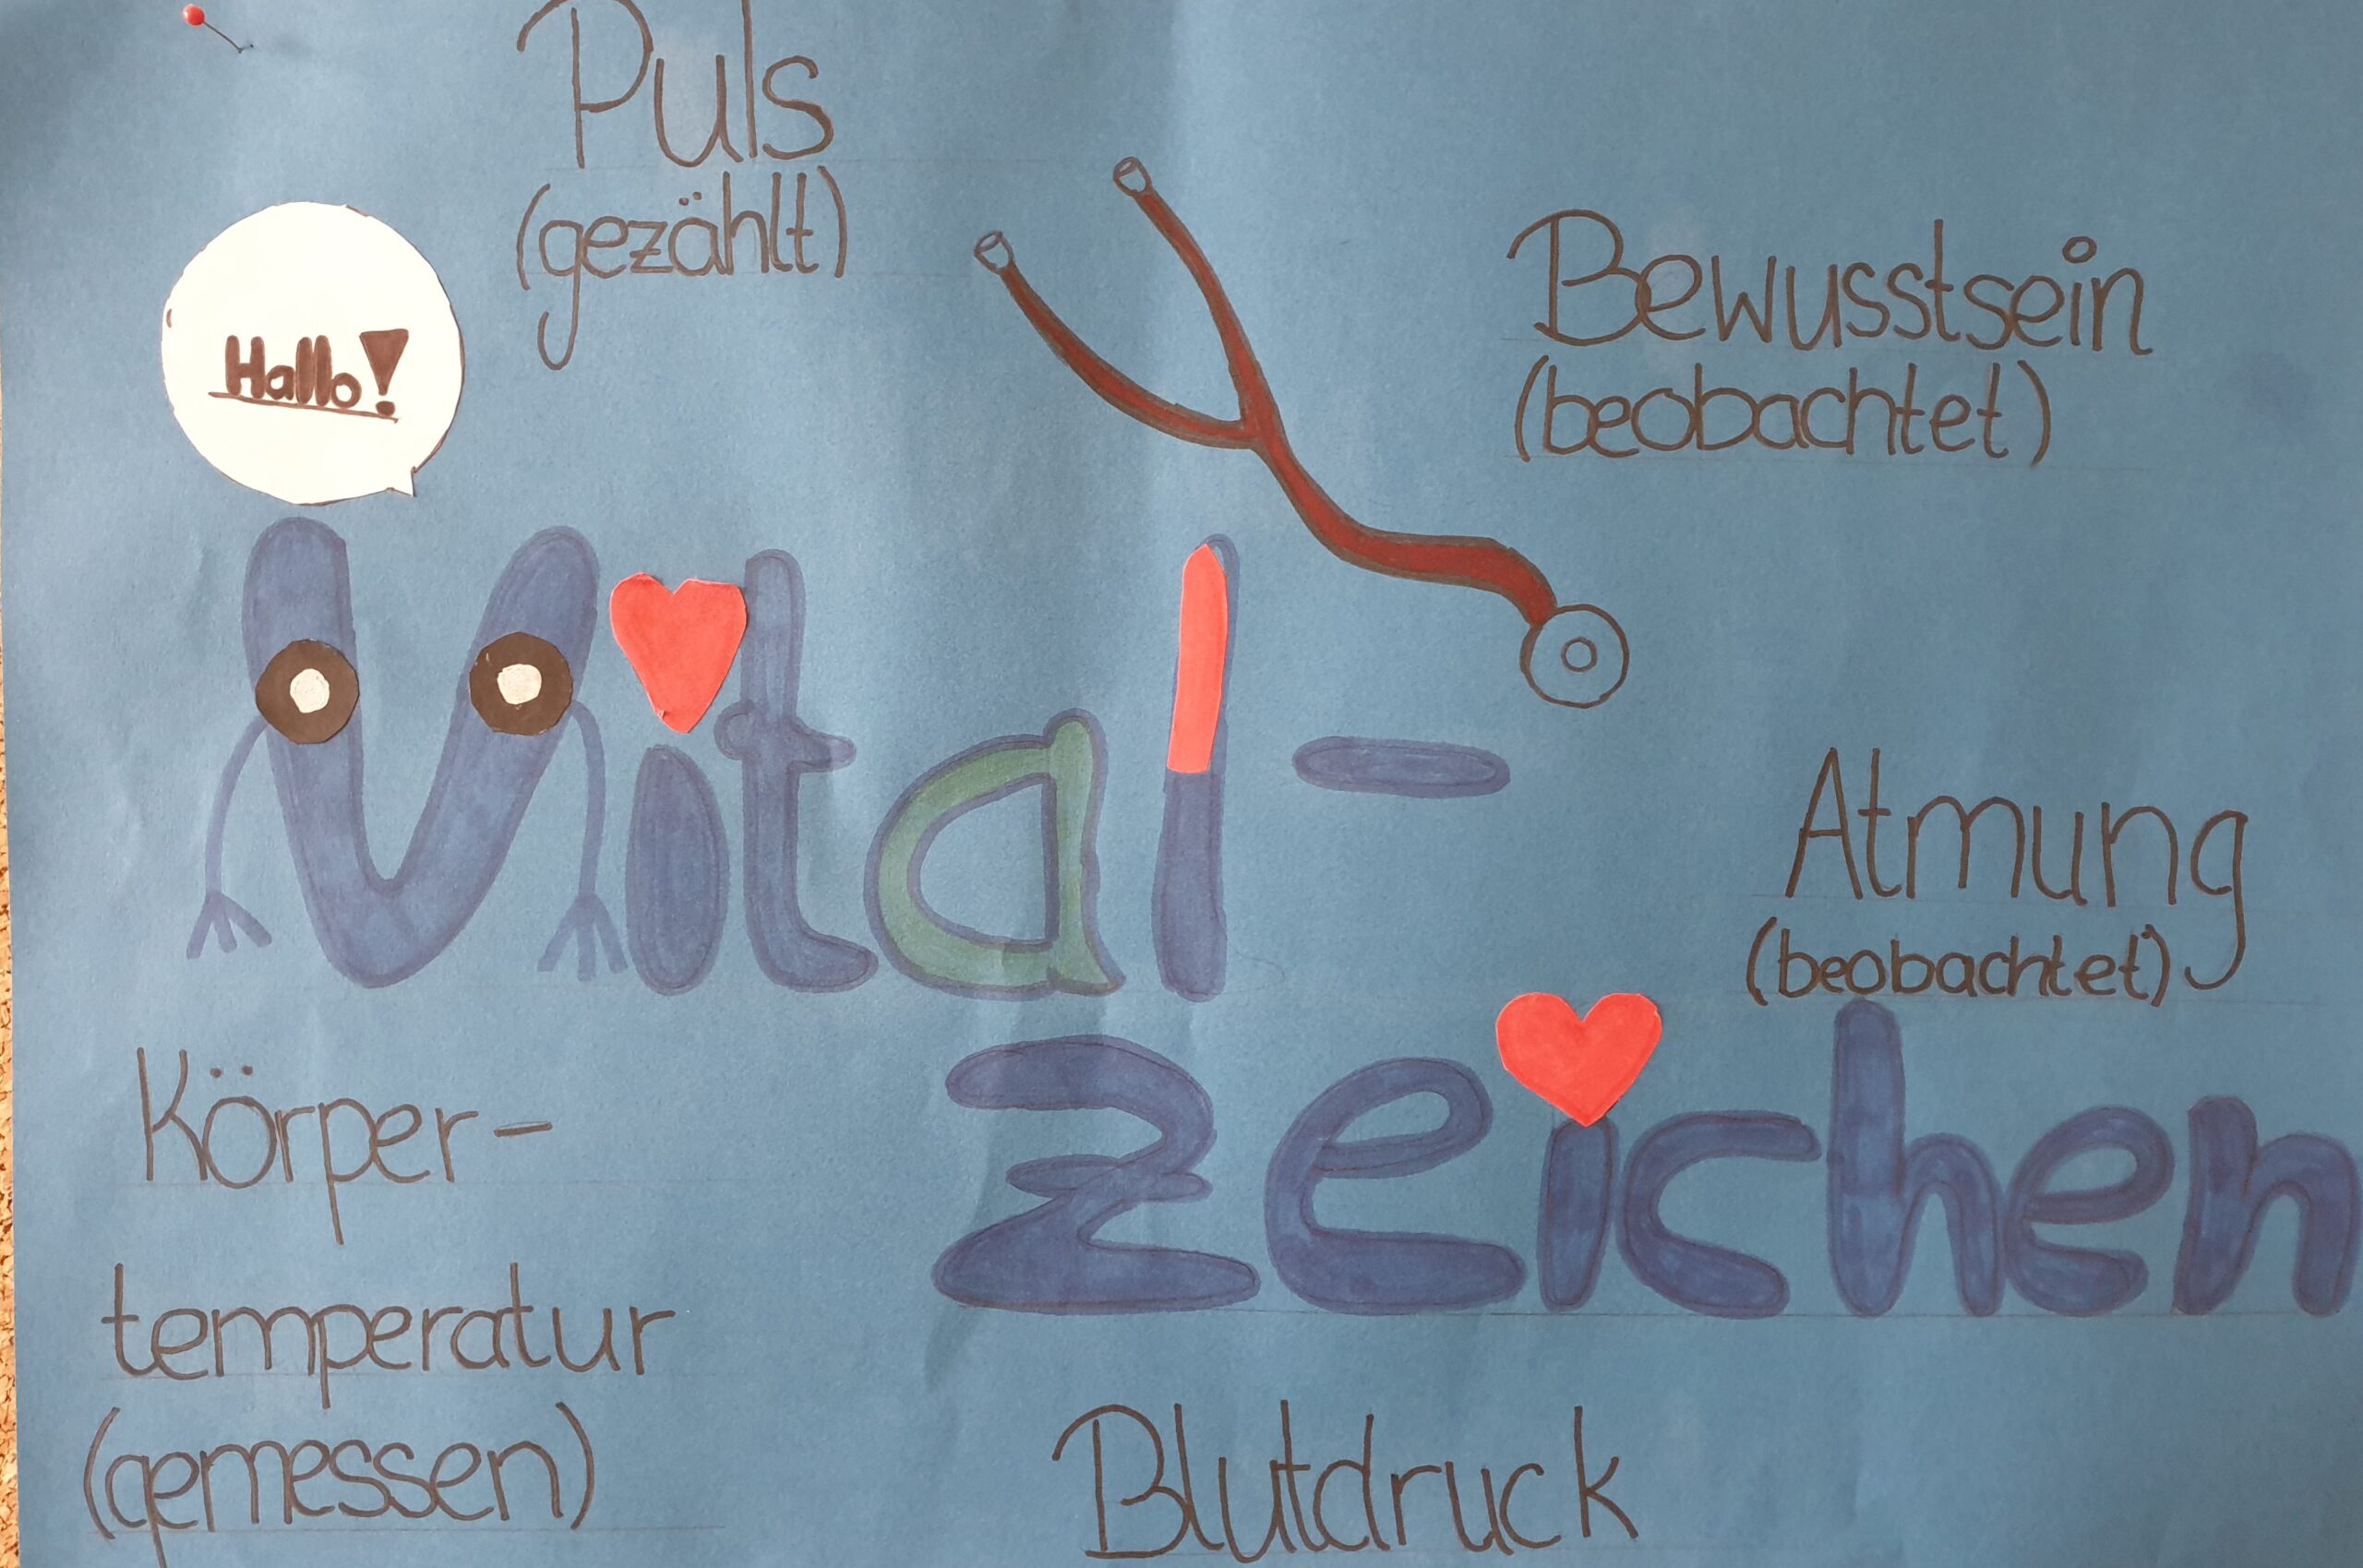 Puls
(gezählt)
Hallo!
Bewusstsein
(beobachtet)
Vital-
zeichen
Atmung
(beobachtet)
Körper-
temperatur
(gemessen)
Blutdruck